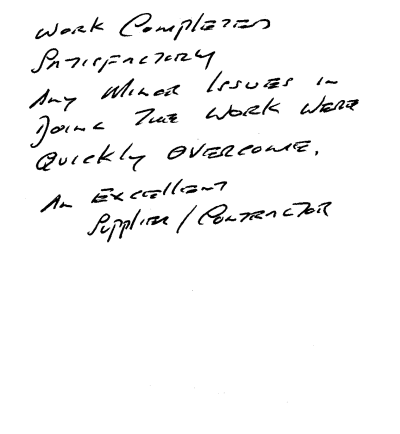 Work Completed
Satisfactory
Any Minor Issues in
Doing The Work Were
Quickly Overcome.
An Excellent
Supplier / Contractor